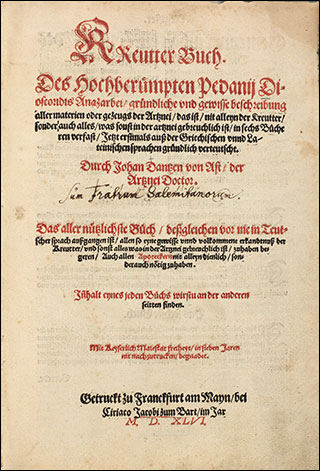 KReutter Buch.
Des Hochberümpten Pedanij Di-
oscoridis Anazarbei / gründliche vnd gewisse beschreibung
aller materien oder gezeugs der Artznei / das ist / nit alleyn der Kreutter /
sonder auch alles / was sonst in der artznei gebreuchlich ist / in sechs Büche
ren verfast / Jetz erstmals auß der Griechischen vnnd La-
teinischen sprachen gründlich verteutscht.
Durch Johan Dantzen von Ast / der
Artznei Doctor.
Sum Fratrum Salemitanorum.
Das aller nützlichste Bůch / deßgleichen vor nie in Teut-
scher sprach außgangen ist / allen so eyne gewisse vnnd vollkommene erkandtnuß der
Kreutter / vnd sonst alles was in der Artznei gebreuchlich ist / zuhaben be-
geren / Auch allen Apoteckern nit alleyn dienlich / son-
der auch nötig zuhaben.
Jnhalt eynes jeden Bůchs wirstu an der anderen
seitten finden.
Mit Keyserlich Maiestat freiheyt / in sieben Jaren
nit nachzutrucken / begnadet.
Getruckt zů Franckfurt am Mayn / bei
Ciriaco Jacobi zum Bart / im Jar
M. D. XLVI.